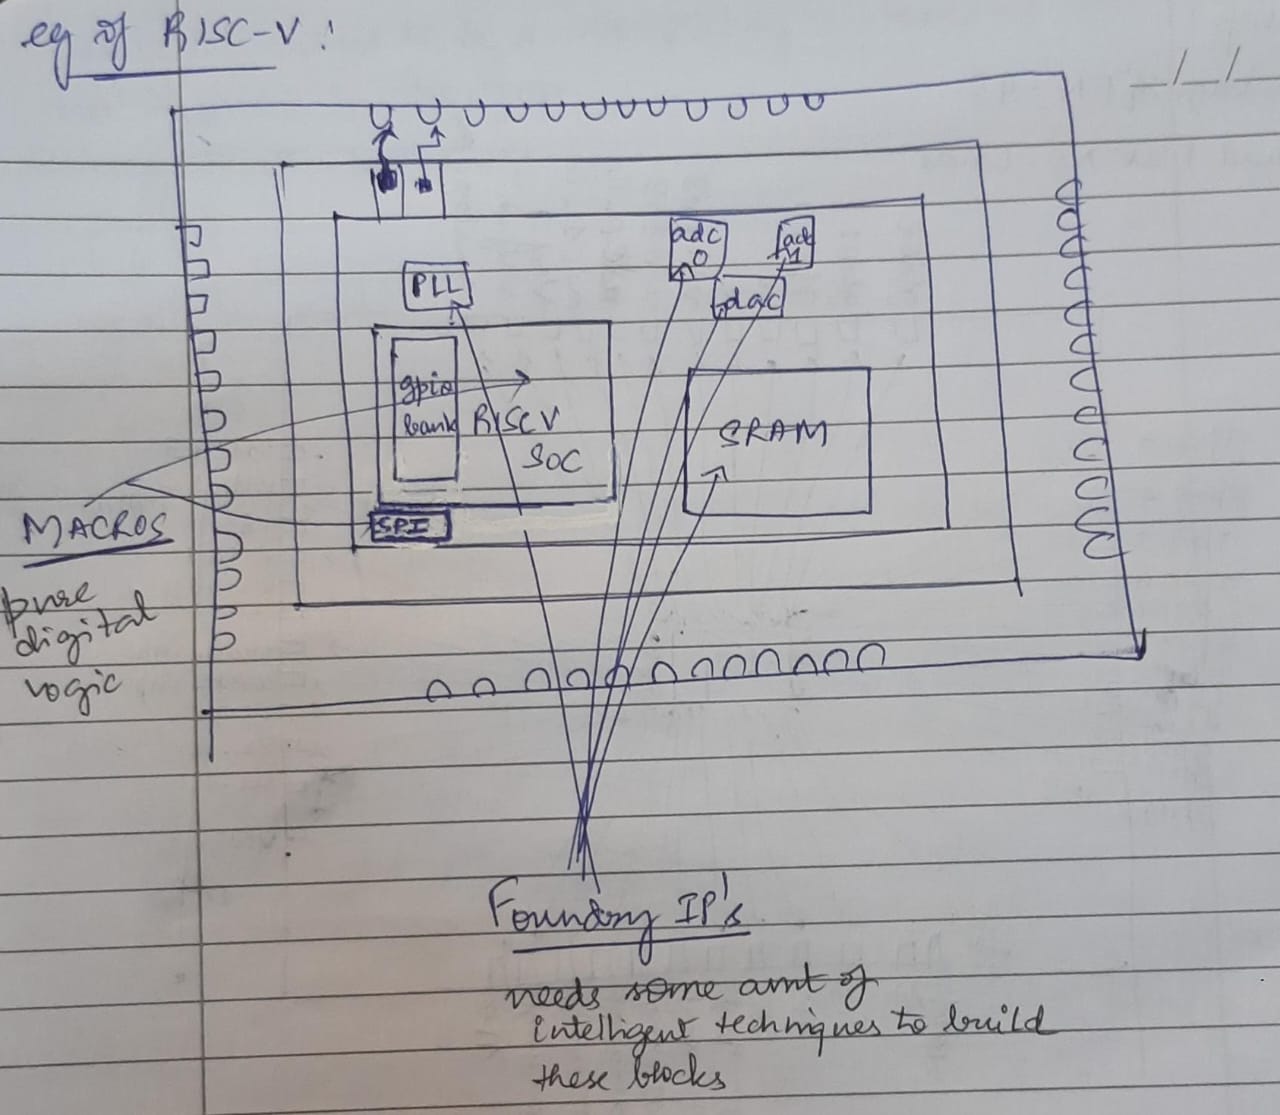 eg of RISC-V :
_/_/_
adc
0
adc
1
PLL
dac
gpio
bank
RISC V
SOC
SRAM
SPI
MACROS
pure
digital
logic
Foundry IP's
needs some amt of
intelligent techniques to build
these blocks